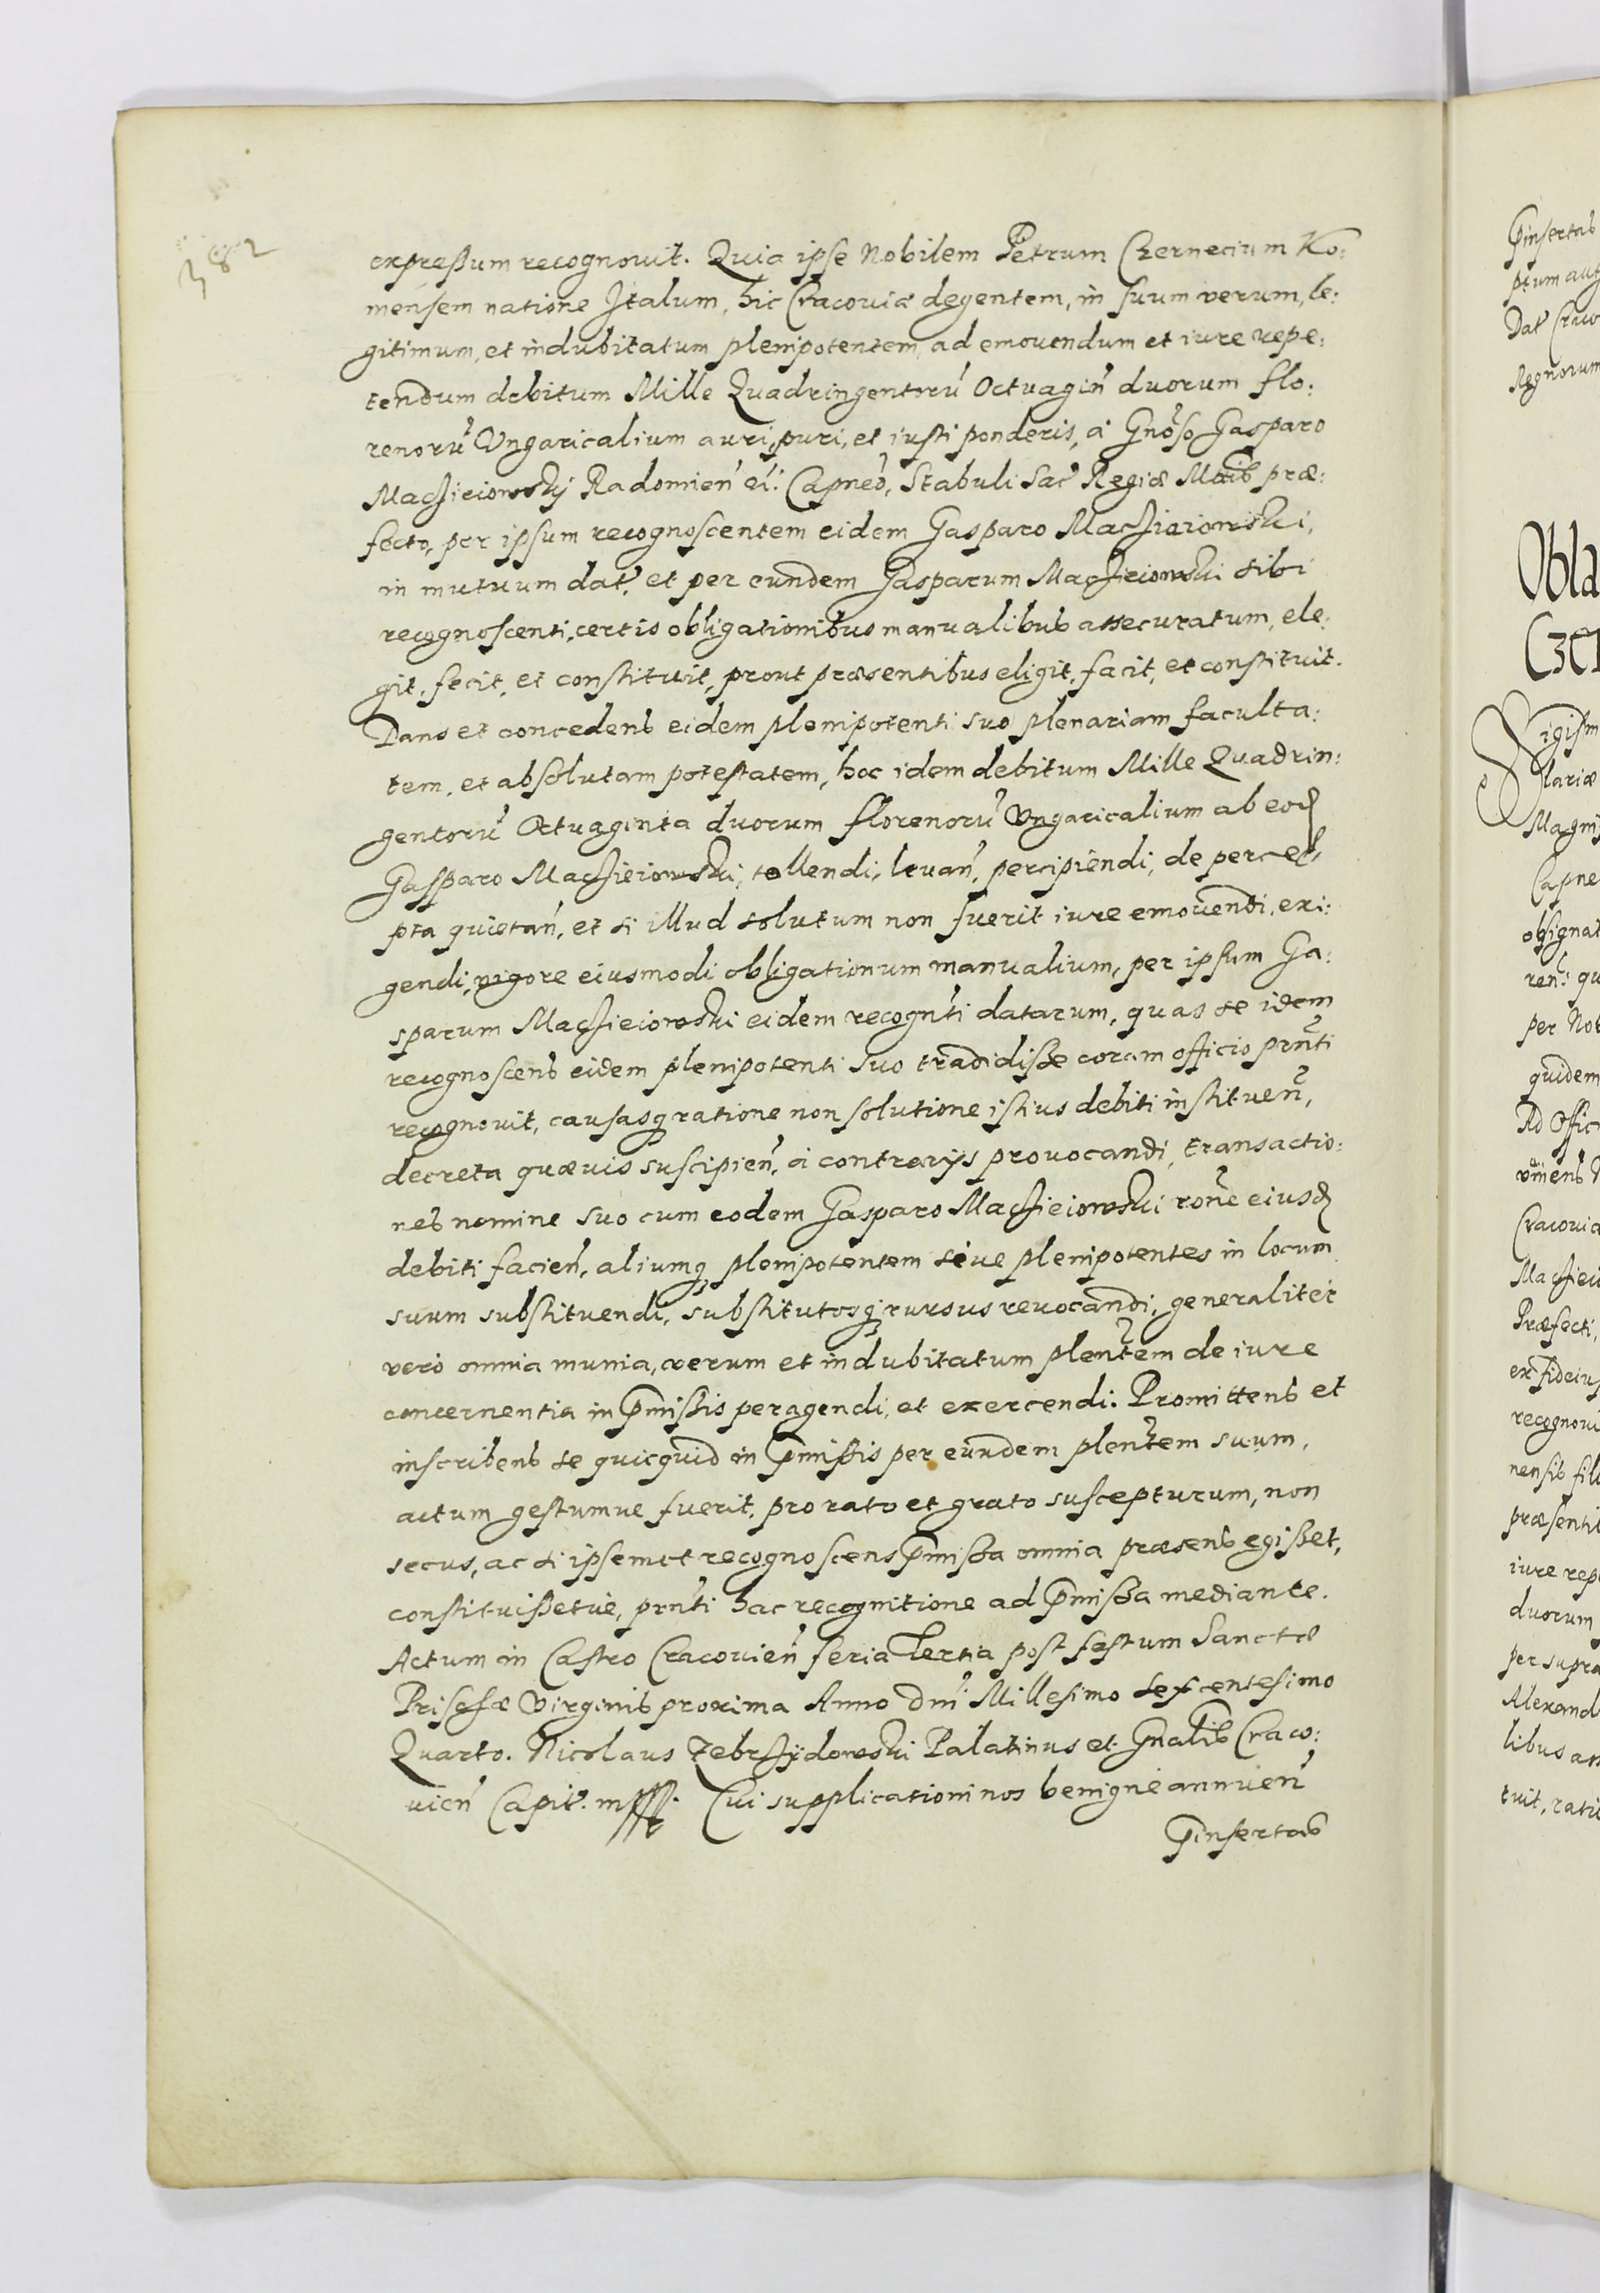 382
expreßum recognovit. Quia ipse Nobilem Petrum Czernecium Ko:
mensem natione Jtalum, hic Cracoviæ degentem, in suum verum, le:
gitimum, et indubitatum plenipotentem ad emovendum et iure repe:
tendum debitum Mille Quadringentorũ Octuagin̄ duorum flo:
renorũ Ungaricalium auri, puri, et iusti ponderis, à Gnõso Gasparo
Maciieiowskij Radomien̄ et: Capneõ, Stabuli Sac̃ Regiæ Mattis præ:
fecto, per ipsum recognoscentem eidem Gasparo Maciieiowski,
in mutuum dat̃, et per eundem Gasparum Maciieiowski sibi
recognoscenti, certis obligationibus manualibus assecuratum, ele:
git, fecit, et constituit, prout præsentibus eligit, facit, et constituit.
Dans et concedens eidem plenipotenti suo plenariam faculta:
tem, et absolutam potestatem, hoc idem debitum Mille Quadrin:
gentorũ Octuaginta duorum florenorũ Ungaricalium ab eod
Gasparo Maciieiowski, tollendi, levan̄, percipiendi, de perce
pta quietan̄, et si illud solutum non fuerit iure emovendi, exi:
gendi, vigore eiusmodi obligationum manualium, per ipsum Ga:
sparum Maciieiowski eidem recogn̄ti datarum, quas se idem
recognoscens eidem plenipotenti suo tradidisse coram officio prn̄ti
recognovit, causasq ratione non solutione istius debiti instituen̄,
decreta quævis suscipien̄, à contrarijs provocandi, transactio:
nes nomine suo cum eodem Gasparo Maciieiowski rōne eiusd
debiti facien̄, aliumq plenipotentem sive plenipotentes in locum
suum substituendi, substitutosq rursus revocandi, generaliter
verò omnia munia, verum et indubitatum plen̄tem de iure
concernentia in p̄mißis peragendi, et exercendi. Promittens et
inscribens se quicquid in p̄mißis per eundem plen̄tem suum,
actum gestumve fuerit, pro rato et grato suscepturum, non
secus, ac si ipsemet recognoscens p̄mißa omnia præsens egißet,
constituißetvè, prn̄ti hac recognitione ad p̄mißa mediante.
Actum in Castro Cracovien̄ feria Tertia post festum Sanctæ
Priscæ Virginis proxima Anno Dn̄i Millesimo sexcentesimo
Quarto. Nicolaus Zebrzÿdowski Palatinus et Gn̄alis Craco:
vien̄ Capit̃. mpp. Cui supplicationi nos benignè annuen̄
p̄insertas